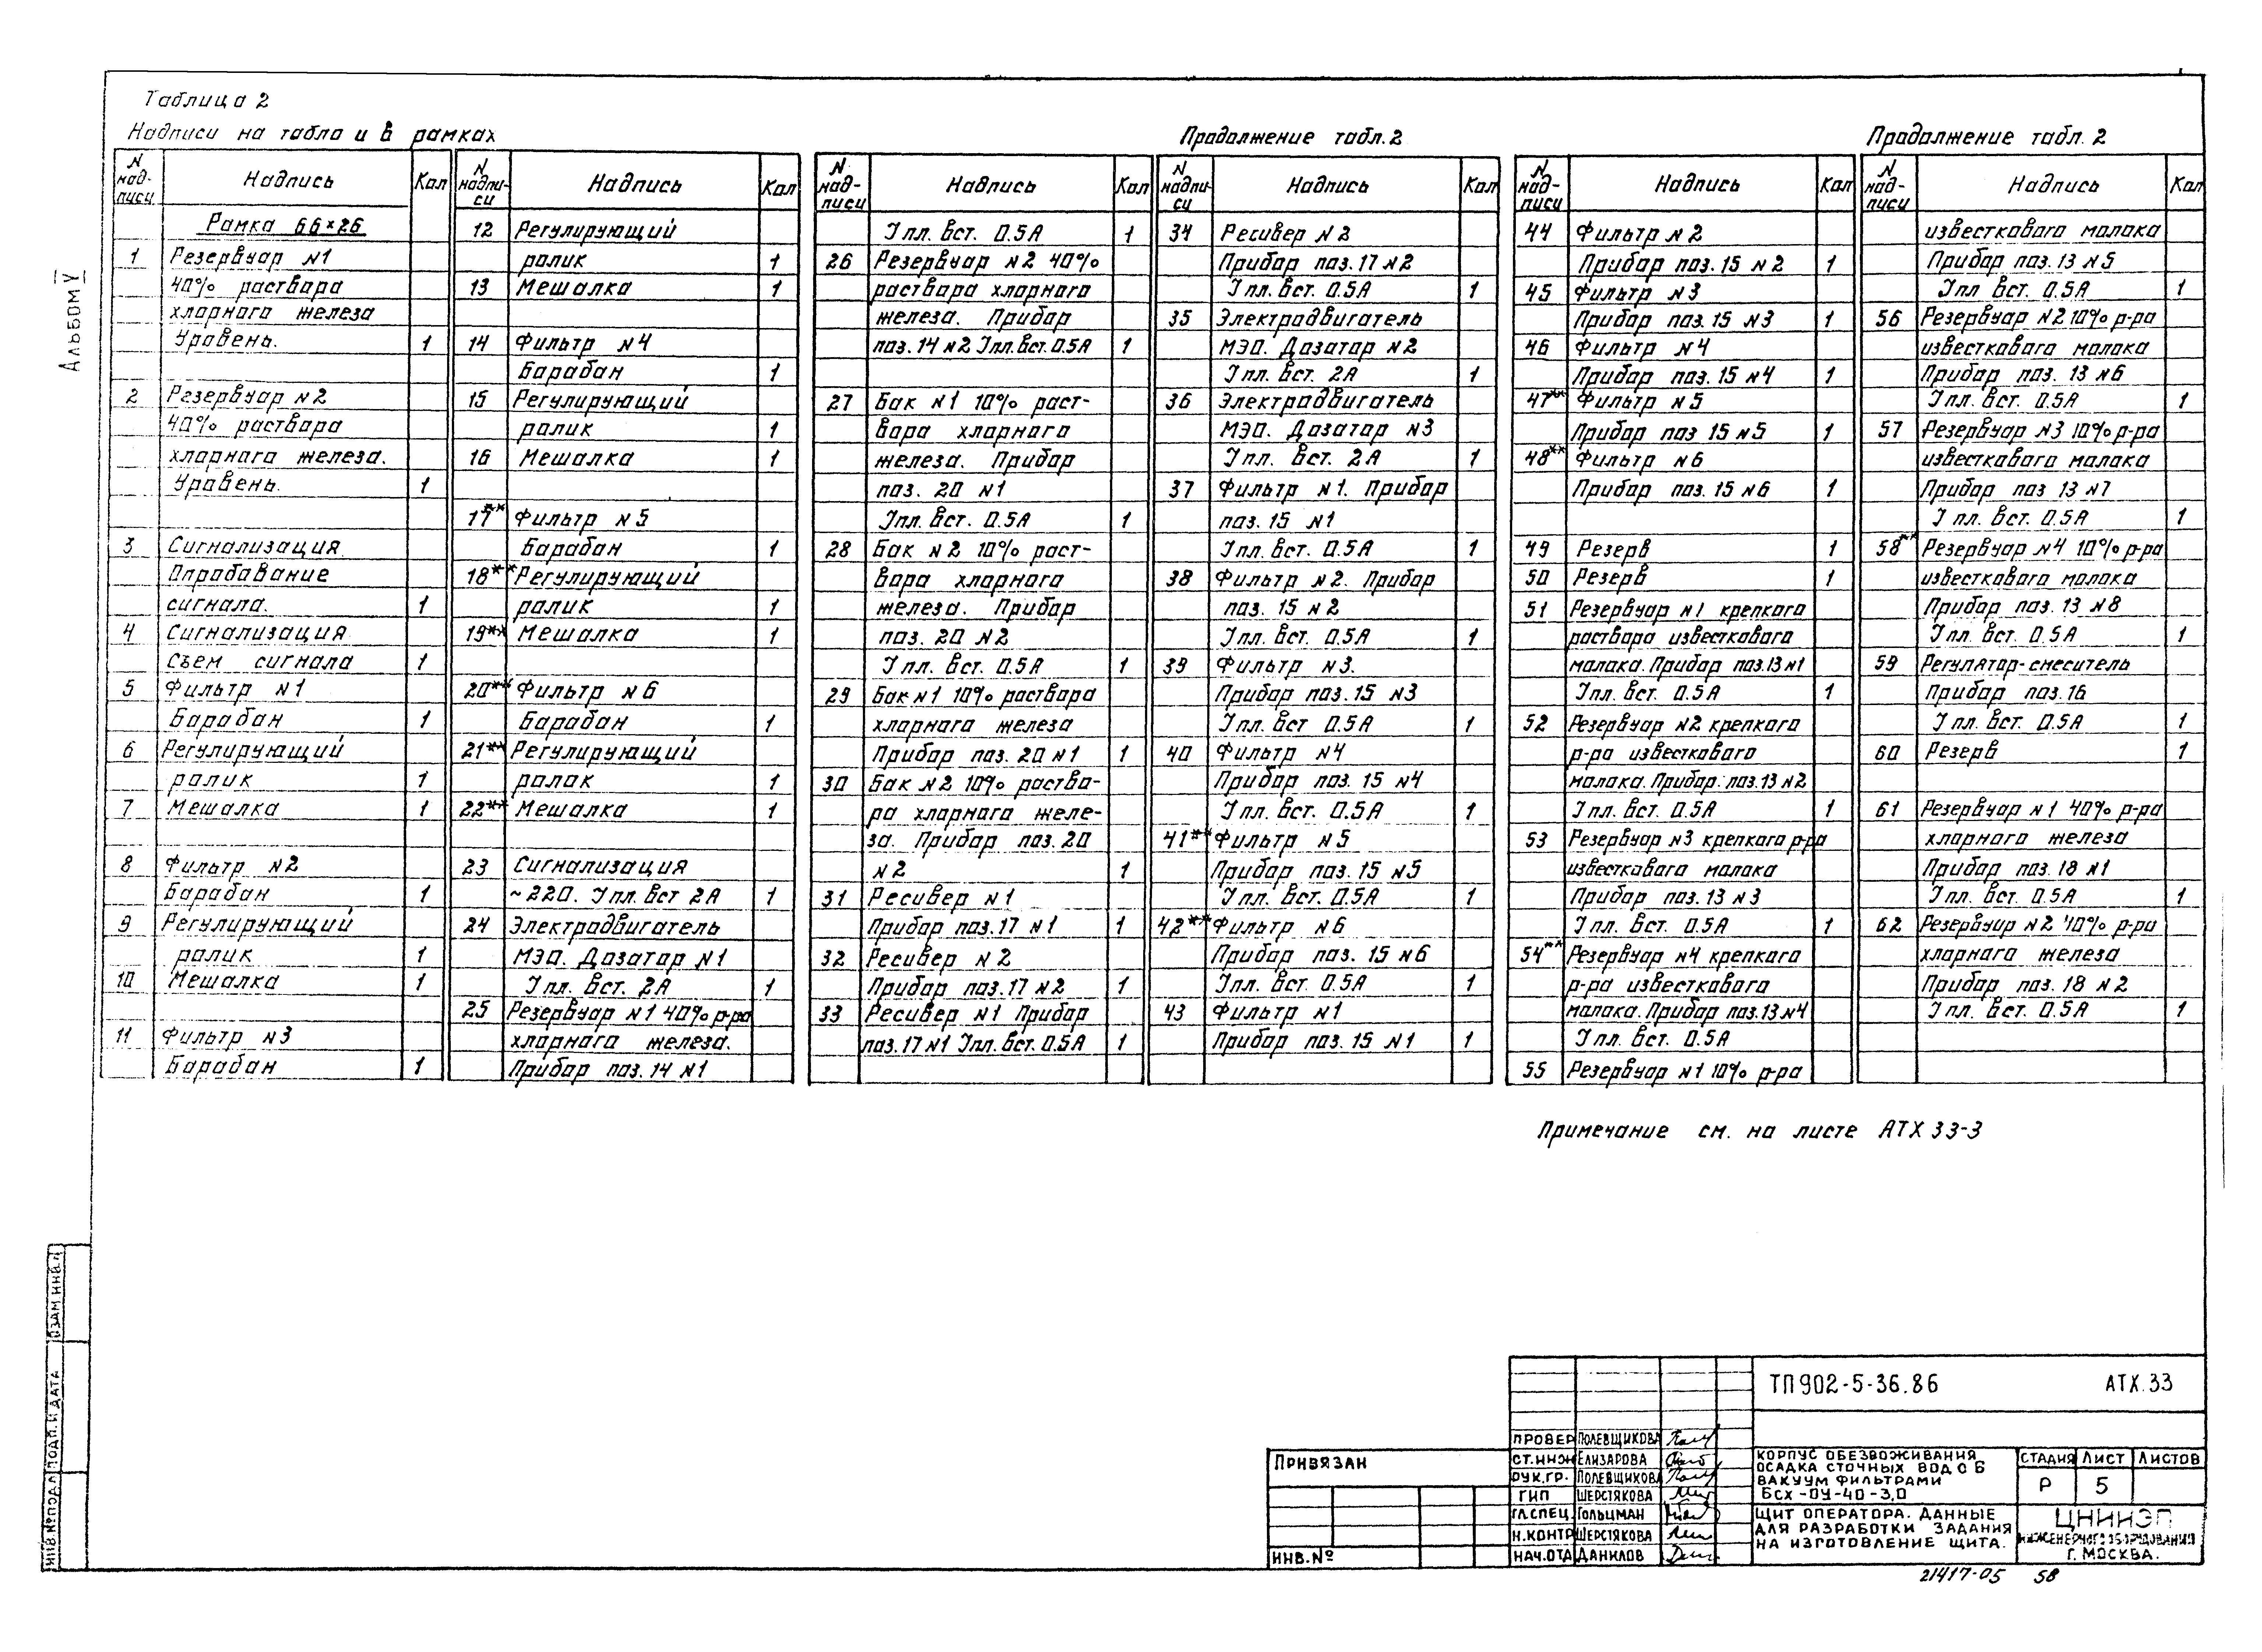 Альбом V
Таблица 2
Надписи на табло и в рамках
N надписи Надпись Кол
Рамка 66×26
1 Резервуар №1
40% раствора
хлорного железа
Уровень. 1
2 Резервуар №2
40% раствора
хлорного железа.
Уровень. 1
3 Сигнализация
Опробование
сигнала. 1
4 Сигнализация
Съем сигнала 1
5 Фильтр №1
Барабан 1
6 Регулирующий
ролик 1
7 Мешалка 1
8 Фильтр №2
Барабан 1
9 Регулирующий
ролик 1
10 Мешалка 1
11 Фильтр №3
Барабан 1
N надписи Надпись Кол
12 Регулирующий
ролик 1
13 Мешалка 1
14 Фильтр №4
Барабан 1
15 Регулирующий
ролик 1
16 Мешалка 1
17** Фильтр №5
Барабан 1
18** Регулирующий
ролик 1
19** Мешалка 1
20** Фильтр №6
Барабан 1
21** Регулирующий
ролик 1
22** Мешалка 1
23 Сигнализация
~220. Iпл. вст 2А 1
24 Электродвигатель
МЭО. Дозатор №1
Iпл. вст. 2А 1
25 Резервуар №1 40% р-ра
хлорного железа.
Прибор поз. 14 №1
Продолжение табл. 2
N надписи Надпись Кол
Iпл. вст. 0.5А 1
26 Резервуар №2 40%
раствора хлорного
железа. Прибор
поз. 14 №2 Iпл. вст. 0.5А 1
27 Бак №1 10% раст-
вора хлорного
железа. Прибор
поз. 20 №1
Iпл. вст. 0.5А 1
28 Бак №2 10% раст-
вора хлорного
железа. Прибор
поз. 20 №2
Iпл. вст. 0.5А 1
29 Бак №1 10% раствора
хлорного железа
Прибор поз. 20 №1 1
30 Бак №2 10% раство-
ра хлорного желе-
за. Прибор поз. 20
№2 1
31 Ресивер №1
Прибор поз. 17 №1 1
32 Ресивер №2
Прибор поз. 17 №2 1
33 Ресивер №1 Прибор
поз. 17 №1 Iпл. вст. 0.5А 1
N надписи Надпись Кол
34 Ресивер №2
Прибор поз. 17 №2
Iпл. вст. 0.5А 1
35 Электродвигатель
МЭО. Дозатор №2
Iпл. вст. 2А 1
36 Электродвигатель
МЭО. Дозатор №3
Iпл. вст. 2А 1
37 Фильтр №1. Прибор
поз. 15 №1
Iпл. вст. 0.5А 1
38 Фильтр №2. Прибор
поз. 15 №2
Iпл. вст. 0.5А 1
39 Фильтр №3.
Прибор поз. 15 №3
Iпл. вст 0.5А 1
40 Фильтр №4
Прибор поз. 15 №4
Iпл. вст. 0.5А 1
41** Фильтр №5
Прибор поз. 15 №5
Iпл. вст. 0.5А 1
42** Фильтр №6
Прибор поз. 15 №6
Iпл. вст. 0.5А 1
43 Фильтр №1
Прибор поз. 15 №1 1
Продолжение табл. 2
N надписи Надпись Кол
44 Фильтр №2
Прибор поз. 15 №2 1
45 Фильтр №3
Прибор поз. 15 №3 1
46 Фильтр №4
Прибор поз. 15 №4 1
47** Фильтр №5
Прибор поз 15 №5 1
48** Фильтр №6
Прибор поз. 15 №6 1
49 Резерв 1
50 Резерв 1
51 Резервуар №1 крепкого
раствора известкового
молока. Прибор поз. 13 №1
Iпл. вст. 0.5А 1
52 Резервуар №2 крепкого
р-ра известкового
молока. Прибор. поз. 13 №2
Iпл. вст. 0.5А 1
53 Резервуар №3 крепкого р-ра
известкового молока
Прибор поз. 13 №3
Iпл. вст. 0.5А 1
54** Резервуар №4 крепкого
р-ра известкового
молока. Прибор поз. 13 №4
Iпл. вст. 0.5А
55 Резервуар №1 10% р-ра
N надписи Надпись Кол
известкового молока
Прибор поз. 13 №5
Iпл вст. 0.5А 1
56 Резервуар №2 10% р-ра
известкового молока
Прибор поз. 13 №6
Iпл. вст. 0.5А 1
57 Резервуар №3 10% р-ра
известкового молока
Прибор поз 13 №7
Iпл. вст. 0.5А 1
58** Резервуар №4 10% р-ра
известкового молока
Прибор поз. 13 №8
Iпл. вст. 0.5А 1
59 Регулятор-смеситель
Прибор поз. 16
Iпл. вст. 0.5А 1
60 Резерв 1
61 Резервуар №1 40% р-ра
хлорного железа
Прибор поз. 18 №1
Iпл. вст. 0.5А 1
62 Резервуар №2 40% р-ра
хлорного железа
Прибор поз. 18 №2
Iпл. вст. 0.5А 1
Примечание см. на листе АТХ 33-3
ТП 902-5-36.86 АТХ.33
ПРОВЕР ПОЛЕВЩИКОВА
СТ.ИНЖ ЕЛИЗАРОВА
РУК.ГР. ПОЛЕВЩИКОВА
ГИП ШЕРСТЯКОВА
ГЛ.СПЕЦ. ГОЛЬЦМАН
Н.КОНТР ШЕРСТЯКОВА
НАЧ.ОТД ДАНИЛОВ
КОРПУС ОБЕЗВОЖИВАНИЯ
ОСАДКА СТОЧНЫХ ВОД С 6
ВАКУУМ ФИЛЬТРАМИ
БСХ-ОУ-40-3,0
СТАДИЯ ЛИСТ ЛИСТОВ
Р 5
ЩИТ ОПЕРАТОРА. ДАННЫЕ
ДЛЯ РАЗРАБОТКИ ЗАДАНИЯ
НА ИЗГОТОВЛЕНИЕ ЩИТА.
ЦНИИЭП
ИНЖЕНЕРНОГО ОБОРУДОВАНИЯ
Г. МОСКВА.
ПРИВЯЗАН
ИНВ.№
ИНВ.№ПОДЛ ПОДП.И ДАТА ВЗАМ ИНВ.№
21417-05 58